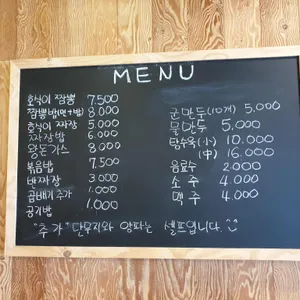 MENU
호식이 짬뽕 7.500
짬뽕밥(면+밥) 8.000
호식이 짜장 5.000
짜장밥 6.000
왕돈가스 8.000
볶음밥 7.500
반짜장 3.000
곱빼기 추가 1.000
공기밥 1.000
군만두(10개) 5,000
물만두 5,000
탕수육 (小) 10.000
(中) 16.000
음료수 2.000
소주 4.000
맥주 4.000
"추가" 단무지와 양파는 셀프입니다. ^^